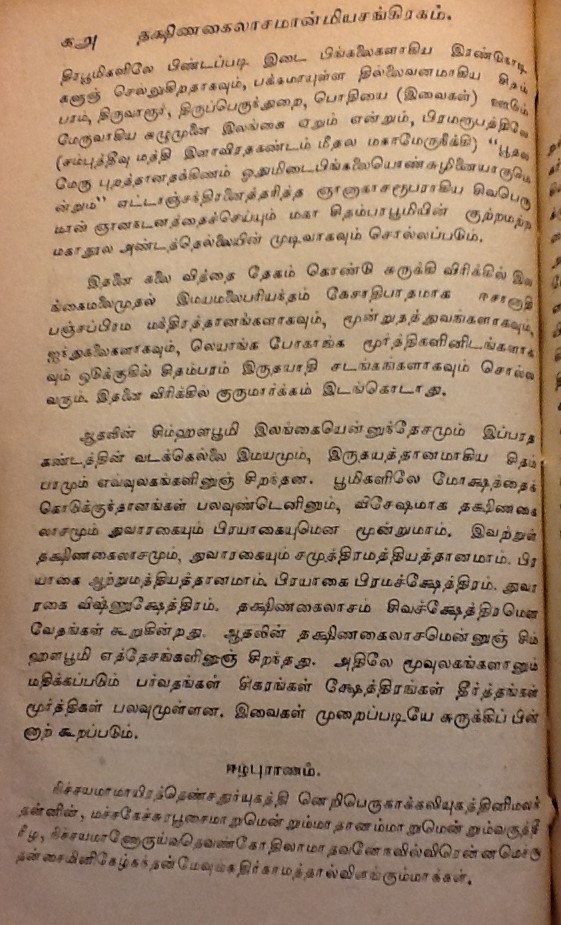 ௧அ தக்ஷிணகைலாசமான்மியசங்கிரகம்.
திரபூமிகளிலே பிண்டப்படி இடை பிங்கலைகளாகிய இரண்டுகோடி
களுஞ் செல்லுகிறதாகவும், பக்கமாயுள்ள தில்லைவனமாகிய சிதம்
பரம், திருவாரூர், திருப்பெருந்துறை, பொதியை (இவைகள்) ஊடும்
மேருவாகிய சுழுமுனை இலங்கை ஏறும் என்றும், பிரமரூபத்திலே
(சம்புத்தீவு மத்தி இளாவிரதகண்டம் மீதல மகாமேருநீக்கி) “பூதல
மேரு புறத்தானதக்கிணம் ஓதுமிடைபிங்கலையொண்சுழினையாகுமெ
ன்றும்” எட்டாஞ்சத்திரனைத்தரித்த ஞானாகாசரூபராகிய சிவபெரு
மான் ஞானநடனத்தைச்செய்யும் மகா சிதம்பராபூமியின் குற்றமற்ற
மகாதூல அண்டத்தெல்லையின் முடிவாகவும் சொல்லப்படும்.
இதனை கலை வித்தை தேகம் கொண்டு சுருக்கி விரிக்கில் இல
ங்கைமலைமுதல் இமயமலைபரியந்தம் கேசாதிபாதமாக ஈசானாதி
பஞ்சப்பிரம மந்திரத்தானங்களாகவும், மூன்றுதத்துவங்களாகவும்,
ஐந்துகலைகளாகவும், லெயாங்க போகாங்க மூர்த்திகளினிடங்களாக
வும் ஒடுக்குகில் சிதம்பரம் இருதயாதி சடங்கங்களாகவும் சொல்ல
வரும். இதனை விரிக்கில் குருமார்க்கம் இடங்கொடாது.
ஆதலின் சிம்ஹளபூமி இலங்கையென்னுந்தேசமும் இப்பரத
கண்டத்தின் வடக்கெல்லை இமயமும், இருதயத்தானமாகிய சிதம்
பரமும் எவ்வுலகங்களினுஞ் சிறந்தன. பூமிகளிலே மோக்ஷத்தைக்
கொடுக்குந்தானங்கள் பலவுண்டெனினும், விசேஷமாக தக்ஷிணகை
லாசமும் துவாரகையும் பிரயாகையுமென மூன்றுமாம். இவற்றுள்
தக்ஷிணகைலாசமும், துவாரகையும் சமுத்திரமத்தியத்தானமாம். பிர
யாகை ஆற்றுமத்தியத்தானமாம். பிரயாகை பிரமக்ஷேத்திரம். துவா
ரகை விஷ்ணுக்ஷேத்திரம். தக்ஷிணகைலாசம் சிவக்ஷேத்திரமென
வேதங்கள் கூறுகின்றது. ஆதலின் தக்ஷிணகைலாசமென்னுஞ் சிம்
ஹளபூமி எத்தேசங்களினுஞ் சிறந்தது. அதிலே மூவுலகங்களானும்
மதிக்கப்படும் பர்வதங்கள் சிகரங்கள் க்ஷேத்திரங்கள் தீர்த்தங்கள்
மூர்த்திகள் பலவுமுள்ளன. இவைகள் முறைப்படியே சுருக்கிப் பின்
னாற் கூறப்படும்.
ஈழபுராணம்.
நிச்சயமாமாயிரத்தெண்சதுர்யுகத்தி னெறிபெருகாக்கலியுகத்தினிமலர்
தன்னின், மச்சகேச்சுரபூசைமாறுமென்றும்மாதானம்மாறுமென்றும்வகுத்